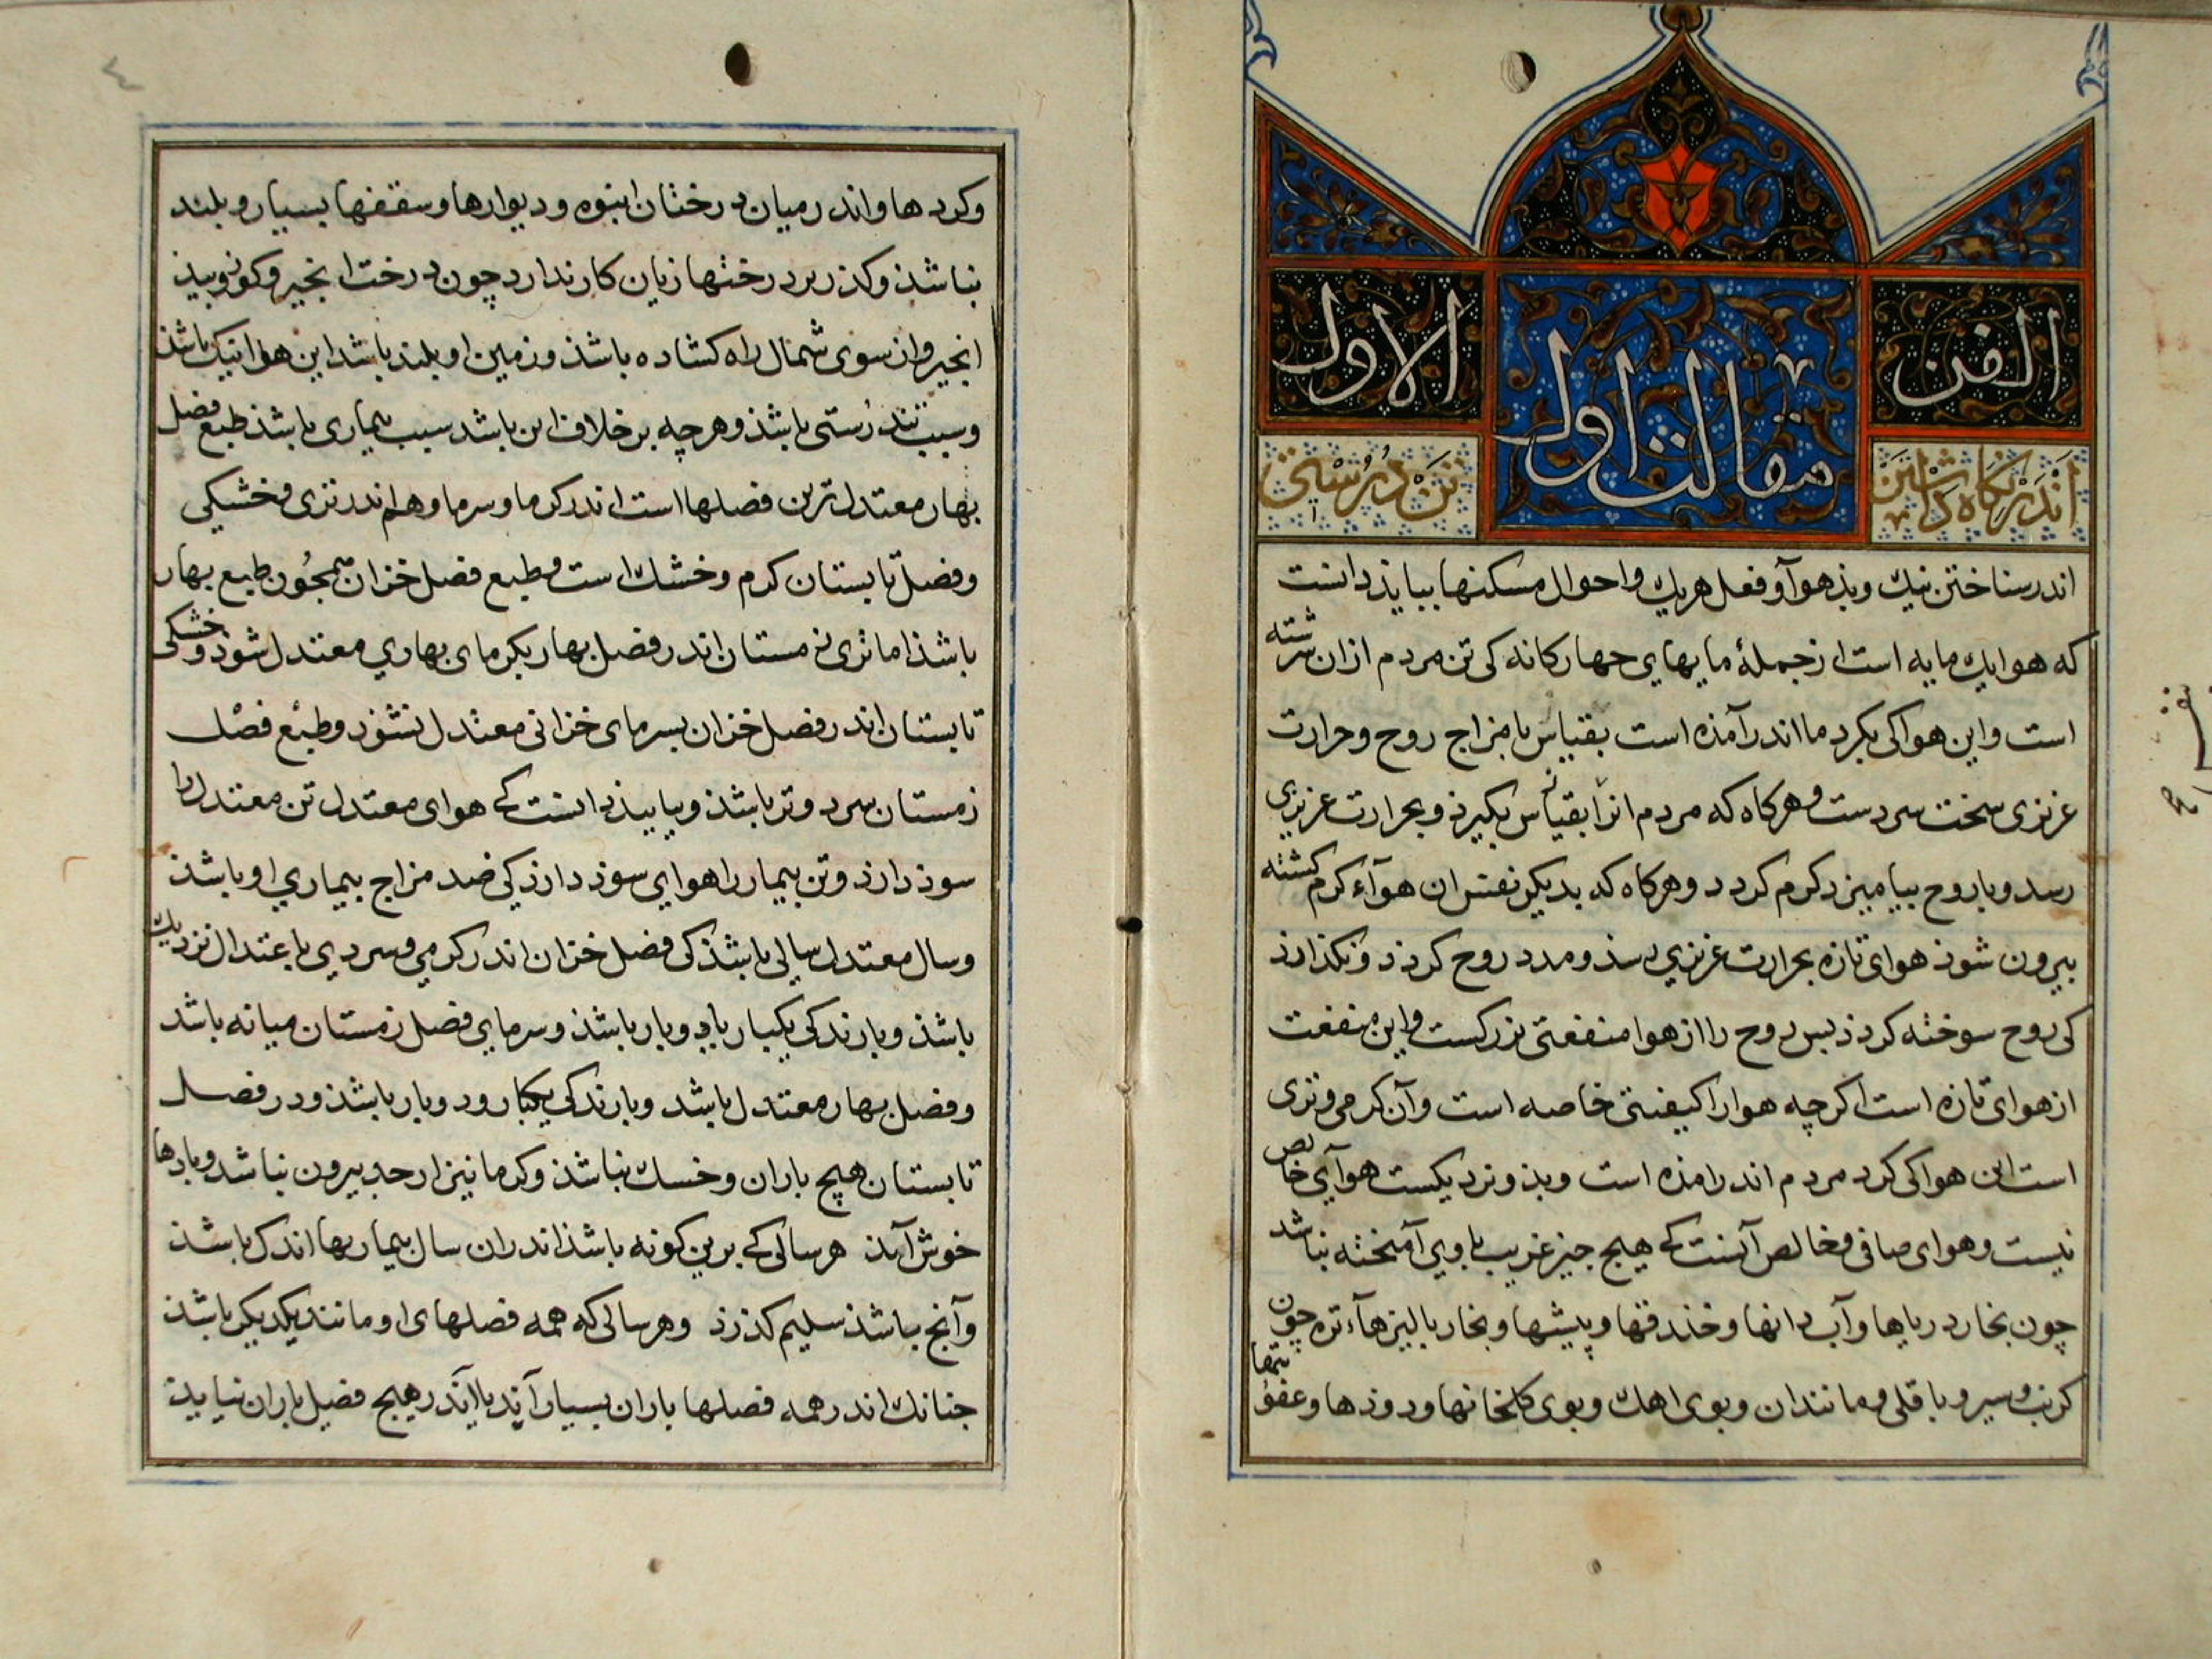 الفن
الاول
مقالت اول
اندر نكاه داشتن
تن درستی
اندر سناختن نیك وبذ هوا و فعل هریك واحوال مسكنها ببایذ دانست
كه هوا یك مایه است از جملهٔ مایهای جهار كانه كی تن مردم ازان سرشته
است واین هوا كی بكرد ما اندر آمذه است بقیاس با مزاج روح وحرارت
غریزی سخت سردست وهركاه كه مردم انرا بقیاس بكیرذ وبحرارت غریزی
رسد وبا روح بیامیزد كرم كردد وهركاه كه بدیكر نفس ان هوآء كرم كشته
بیرون شوذ هوای تازه بحرارت غریزی رسذ ومدد روح كردد ونكذارذ
كی روح سوخته كردذ بس روح را از هوا منفعتی بزركست واین منفعت
از هوای تازه است اكرچه هوا را كیفیتی خاصه است وآن كرمی وتری
است این هوا كی كرد مردم اندر امذه است وبذو نزدیكست هوآی خالص
نیست وهوای صافی وخالص آنست كی هیچ جیز غریب با وی آمیخته نباشد
چون بخار دریاها وآب دانها وخندقها وبیشها وبخار بالیزهآء تره چون
كرنب وسیر وباقلی ومانند ان وبوی اهك وبوی كلخانها ودوذها وعفونتها
وكردها واندر میان درختان انبوه ودیوارها وسقفها بسیار وبلند
نباشذ وكذر بر درختها زیان كار ندارد چون درخت انجیر وكوز وبیذ
انجیر واز سوی شمال راه كشاده باشذ وزمین او بلند باشد این هوا نیك باشذ
وسبب تندرستی باشذ وهرچه بر خلاف این باشد سبب بیماری باشذ طبع فصل
بهار معتدل ترین فصلها است اندر كرما وسرما وهم اندر تری وخشكی
وفصل تابستان كرم وخشك است وطبع فصل خزان همچون طبع بهار
باشذ اما تری زمستان اندر فصل بهار بكرمای بهاری معتدل شوذ وخشكی
تابستان اندر فصل خزان بسرمای خزانی معتدل نشوذ وطبع فصل
زمستان سرد وتر باشذ وببایذ دانست كی هوای معتدل تن معتدل را
سوذ دارذ وتن بیمار را هوای سوذ دارذ كی ضد مزاج بیماری او باشذ
وسال معتدل سالی باشذ كی فصل خزان اندر كرمی وسردی باعتدال نزدیك
باشذ وبارندكی یكبار یا دو بار باشذ وسرمای فصل زمستان میانه باشد
وفصل بهار معتدل باشد وبارندكی یكبار ودو بار باشذ ودر فصل
تابستان هیچ باران وخسك نباشذ وكرما نیز از حد بیرون نباشد وبادها
خوش آید هر سالی كی برین كونه باشذ اندران سال بیماریها اندك باشذ
وآنچ باشذ سلیم كذرذ وهر سالی كه همه فصلهای او مانند یكدیكر باشذ
جنانك اندر همه فصلها باران بسیار آید یا اندر هیچ فصل باران نیایذ